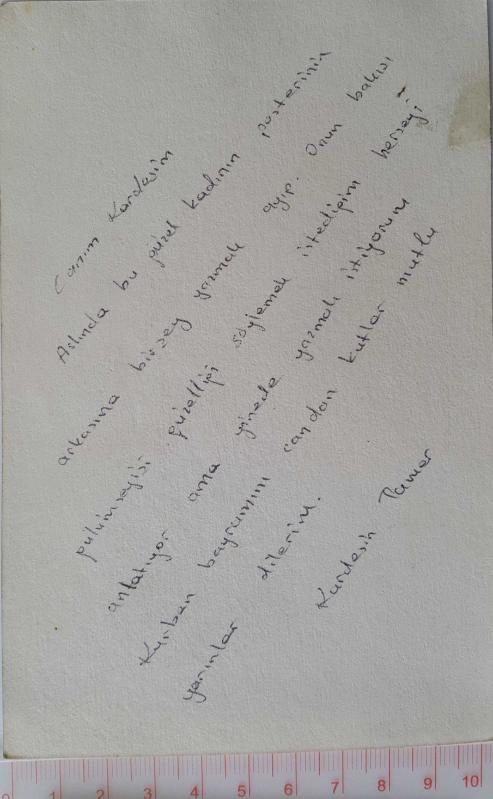 Canım Kardeşim
Aslında bu güzel kadının posterinin
arkasına birşey yazmak ayıp. Onun bakışı
gülümseyişi güzelliği söylemek istediğim herşeyi
anlatıyor ama yinede yazmak istiyorum
Kurban bayramını candan kutlar mutlu
yarınlar dilerim.
Kardeşin Tamer
0 1 2 3 4 5 6 7 8 9 10